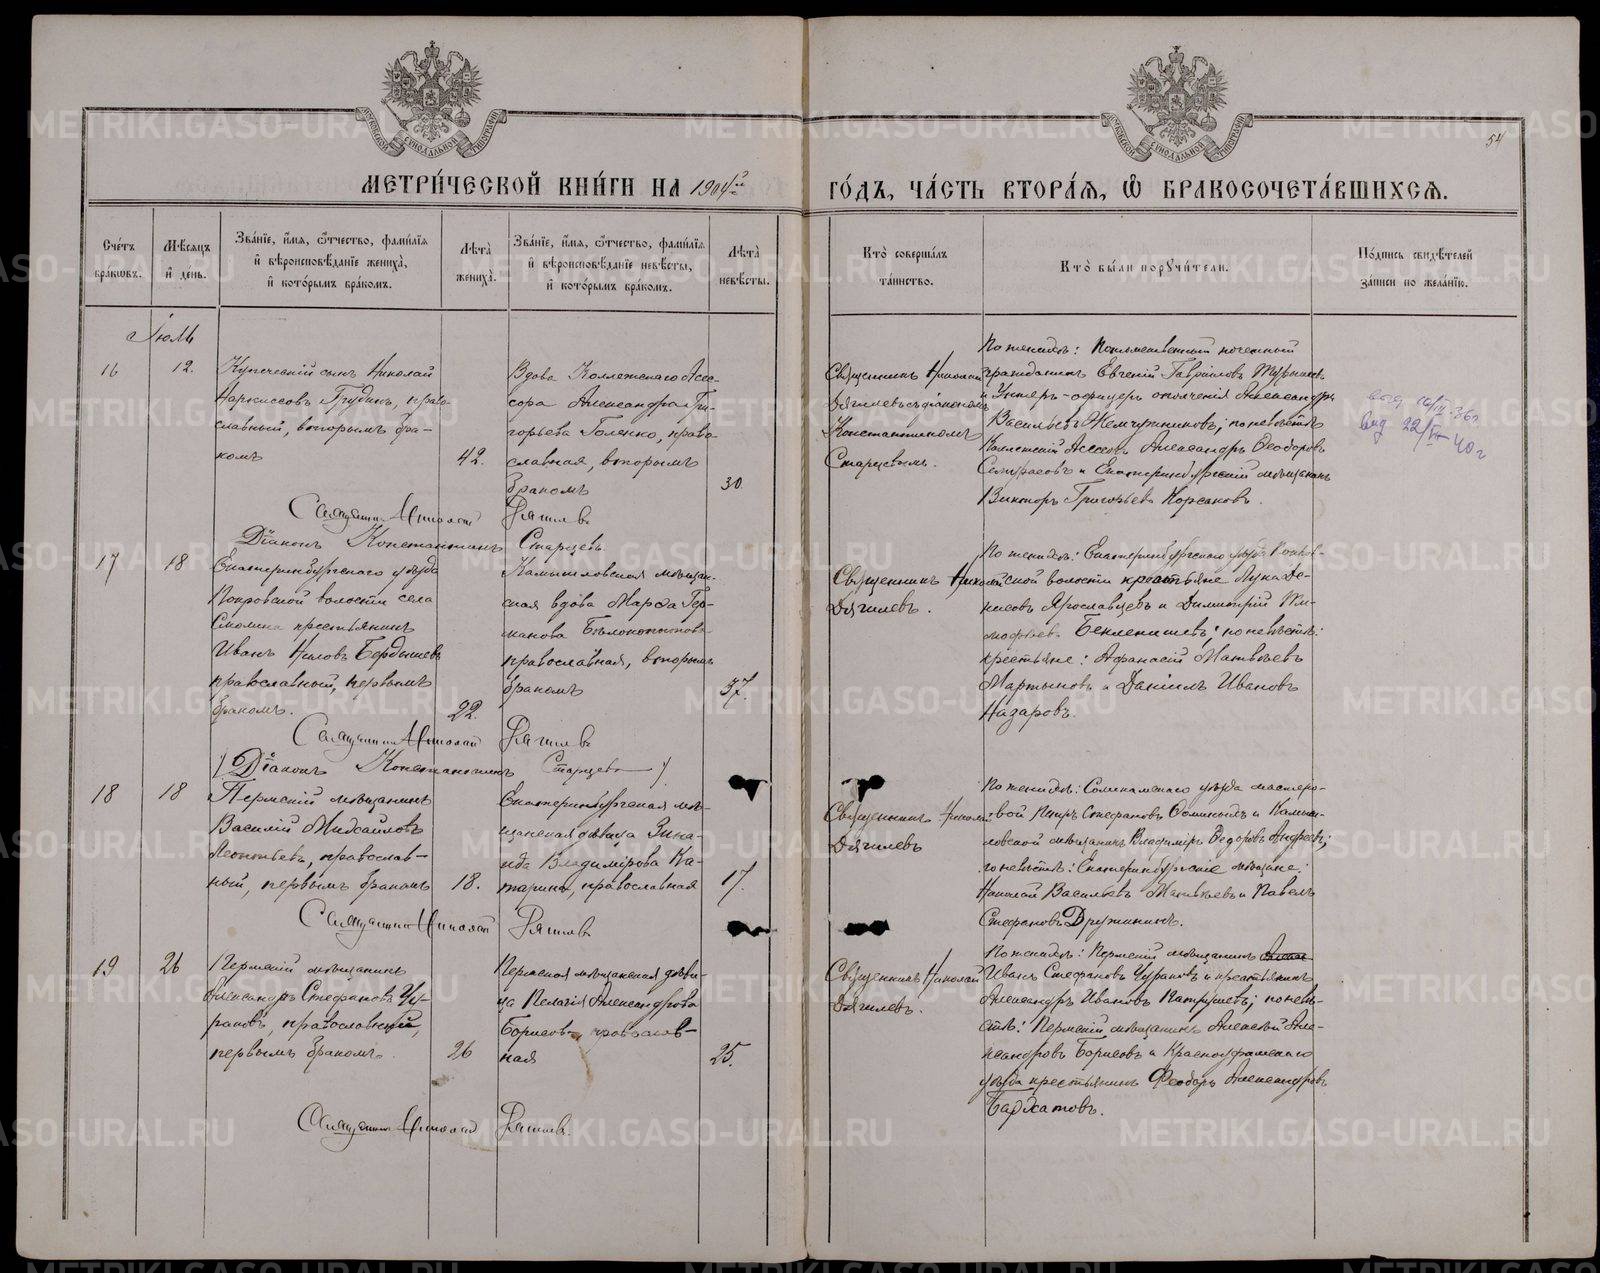 МЕТРИ́ЧЕСКОЙ КНИ́ГИ НА 1904й ГО́ДЪ, ЧА́СТЬ ВТОРА́Я, Ѿ БРАКОСОЧЕТА́ВШИХСѦ.
54
Сче́тъ бра́кѡвъ.
Мѣ́сѧцъ и҆ де́нь.
Зва́нїе, и҆́мѧ, ѻ҆́тчество, фами́лїѧ и҆ вѣроисповѣ́данїе жениха̀, и҆ кото́рымъ бра́комъ.
Лѣ̑та̀ жениха̀.
Зва́нїе, и҆́мѧ, ѻ҆́тчество, фами́лїѧ и҆ вѣроисповѣ́данїе невѣ́сты, и҆ кото́рымъ бра́комъ.
Лѣ̑та̀ невѣ́сты.
Кто̀ соверша́лъ та́инство.
Кто̀ бы́ли порꙋчи́тели.
По́дпись свидѣ́телей за́писи по жела́нїю.
Іюль
16
12.
Купеческій сынъ Николай
Наркиссовъ Грудинъ, право-
славный, вторымъ бра-
комъ
42.
Вдова Коллежскаго Асес-
сора Александра Гри-
горьева Голенко, право-
славная, вторымъ
бракомъ
30.
Священникъ Николай
Дягилевъ съ діакономъ
Константиномъ
Старцевымъ.
По женихѣ: Потомственный почетный
гражданинъ Евгеній Гавріиловъ
и Унтеръ-офицеръ ополченія Александръ
Васильевъ Жемчужниковъ; по невѣстѣ:
Коллежскій Асессоръ Александръ Ѳеодоровъ
и Екатеринбургскій мѣщанинъ
Викторъ Григорьевъ Корсаковъ.
Священникъ Николай Дягилевъ
Діаконъ Константинъ Старцевъ.
17
18
Екатеринбургскаго уѣзда
Покровской волости села
Смолина крестьянинъ
Иванъ Ниловъ Бердышевъ
православный, первымъ
бракомъ.
22.
Камышловская мѣщан-
ская вдова Марѳа Гер-
манова Бѣлокопытова
православная, вторымъ
бракомъ
37.
Священникъ Николай
Дягилевъ.
По женихѣ: Екатеринбургскаго уѣзда Покров-
ской волости крестьяне Лука Де-
нисовъ Ярославцевъ и Димитрій Ти-
моѳеевъ Бекленищевъ; по невѣстѣ:
крестьяне: Аѳанасій Матвѣевъ
Мартыновъ и Даніилъ Ивановъ
Назаровъ.
Священникъ Николай Дягилевъ
/ Діаконъ Константинъ Старцевъ /
18
18
Пермскій мѣщанинъ
Василій Михайловъ
Леонтьевъ, православ-
ный, первымъ бракомъ
18.
Екатеринбургская мѣ-
щанская дѣвица Зина-
ида Владимірова Ка-
тарина, православная
17.
Священникъ Николай
Дягилевъ
По женихѣ: Соликамскаго уѣзда мастеро-
вой Петръ Стефановъ Ѳоминыхъ и Камыш-
ловской мѣщанинъ Владиміръ Ѳедоровъ Андреевъ;
по невѣстѣ: Екатеринбургскіе мѣщане:
Николай Васильевъ Матвѣевъ и Павелъ
Стефановъ Дружининъ.
Священникъ Николай Дягилевъ
19
26
Пермскій мѣщанинъ
Александръ Стефановъ Чу-
раковъ, православный,
первымъ бракомъ.
26
Пермская мѣщанская дѣви-
ца Пелагія Александрова
Борисова, православ-
ная
25.
Священникъ Николай
Дягилевъ.
По женихѣ: Пермскій мѣщанинъ
Иванъ Стефановъ Чураковъ и крестьянинъ
Александръ Ивановъ Катрушевъ; по невѣ-
стѣ: Пермскій мѣщанинъ Алексѣй Але-
ксандровъ Борисовъ и Красноуфимскаго
уѣзда крестьянинъ Ѳеодоръ Александровъ
Бархатовъ.
Священникъ Николай Дягилевъ.
METRIKI.GASO-URAL.RU